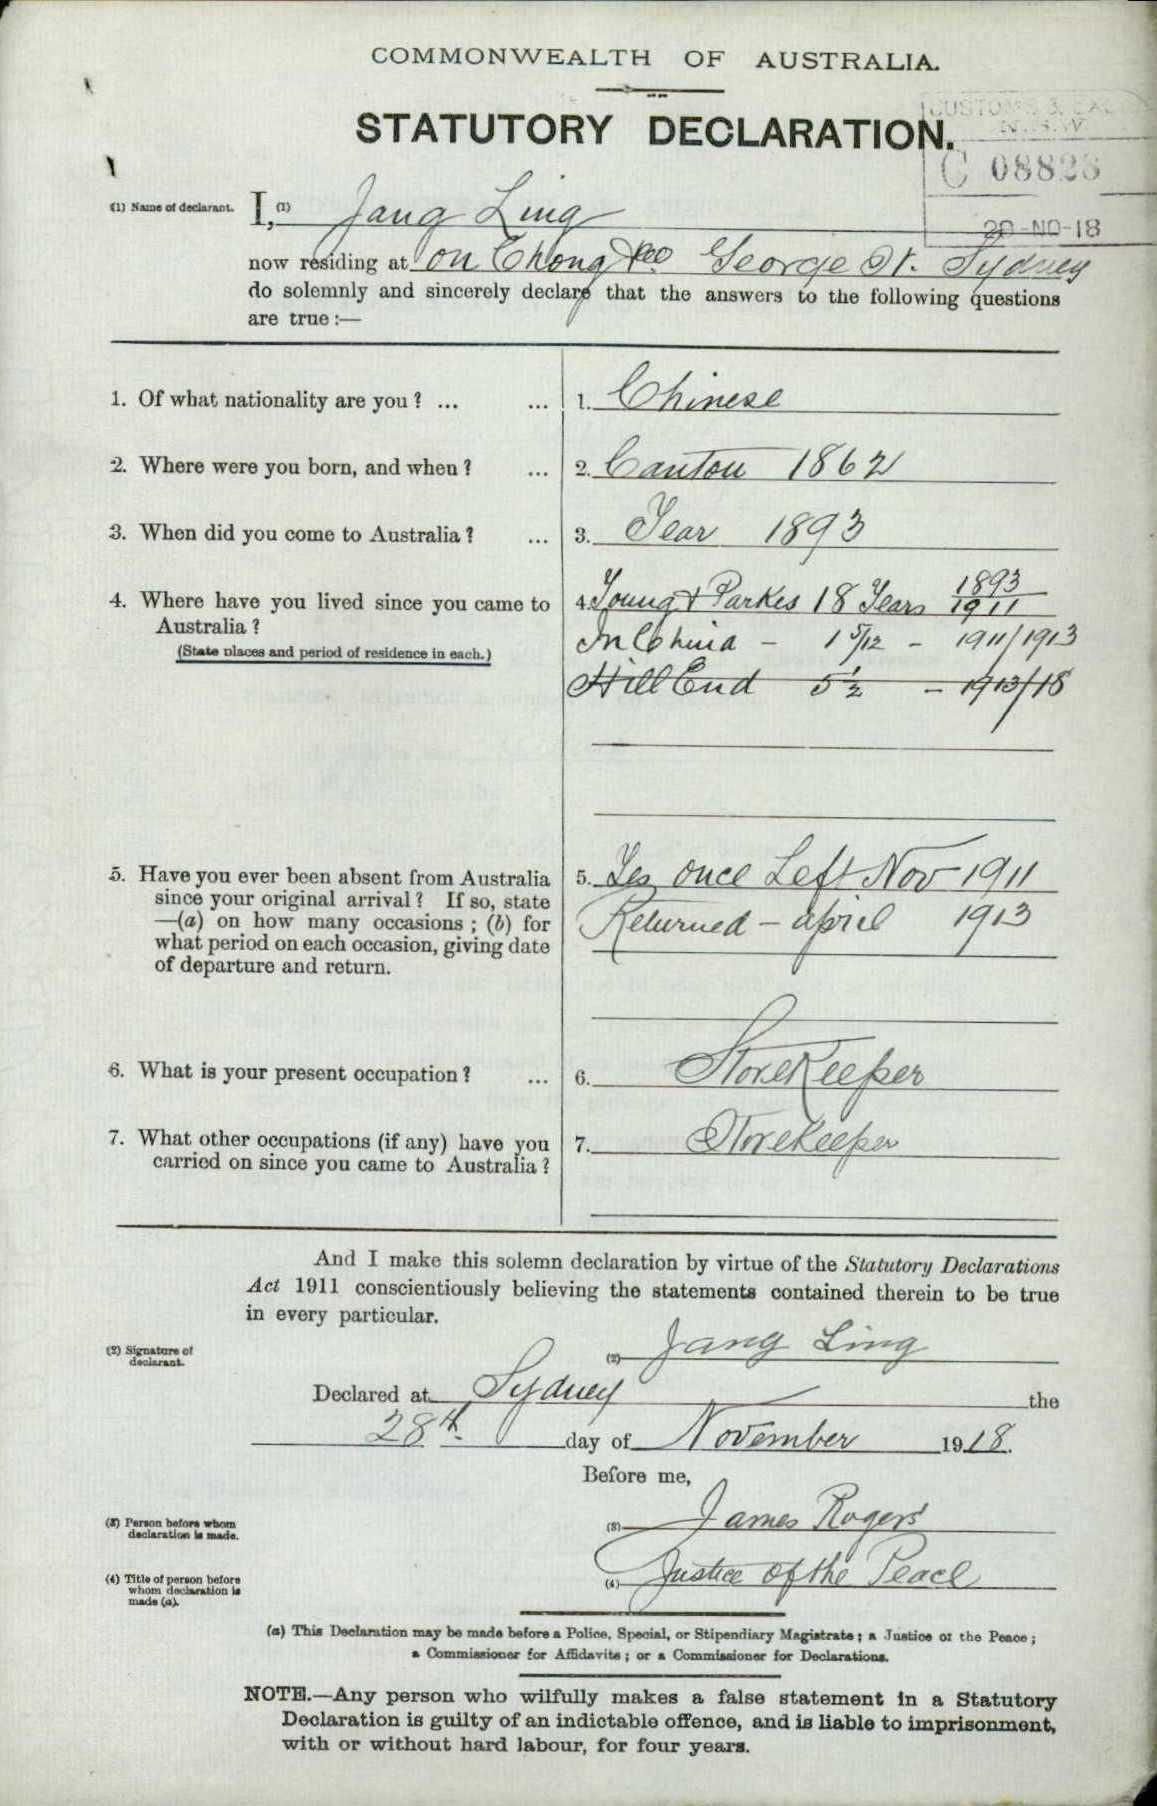 COMMONWEALTH OF AUSTRALIA.
STATUTORY DECLARATION.
CUSTOMS &
N.S.W
C 08828
20-NO-18
(1) Name of declarant. I, (1) Jang Ling
now residing at On Chong &Co George St. Sydney
do solemnly and sincerely declare that the answers to the following questions
are true :—
1. Of what nationality are you ? ... ... 1. Chinese
2. Where were you born, and when ? ... 2. Canton 1862
3. When did you come to Australia ? ... 3. Year 1893
4. Where have you lived since you came to Australia ? (State places and period of residence in each.)
4. Young & Parkes 18 Years 1893/1911
In China - 1 5/12 - 1911/1913
Hill End 5 1/2 - 1913/18
5. Have you ever been absent from Australia
since your original arrival ? If so, state
—(a) on how many occasions ; (b) for
what period on each occasion, giving date
of departure and return.
5. Yes once Left Nov 1911
Returned - april 1913
6. What is your present occupation ? ... 6. StoreKeeper
7. What other occupations (if any) have you
carried on since you came to Australia ?
7. StoreKeeper
And I make this solemn declaration by virtue of the Statutory Declarations
Act 1911 conscientiously believing the statements contained therein to be true
in every particular.
(2) Signature of declarant.
(2) Jang Ling
Declared at Sydney the
28th day of November 1918.
Before me,
(3) Person before whom declaration is made.
(3) James Rogers
(4) Title of person before whom declaration is made (a).
(4) Justice of the Peace
(a) This Declaration may be made before a Police, Special, or Stipendiary Magistrate ; a Justice of the Peace ;
a Commissioner for Affidavits ; or a Commissioner for Declarations.
NOTE.—Any person who wilfully makes a false statement in a Statutory
Declaration is guilty of an indictable offence, and is liable to imprisonment,
with or without hard labour, for four years.